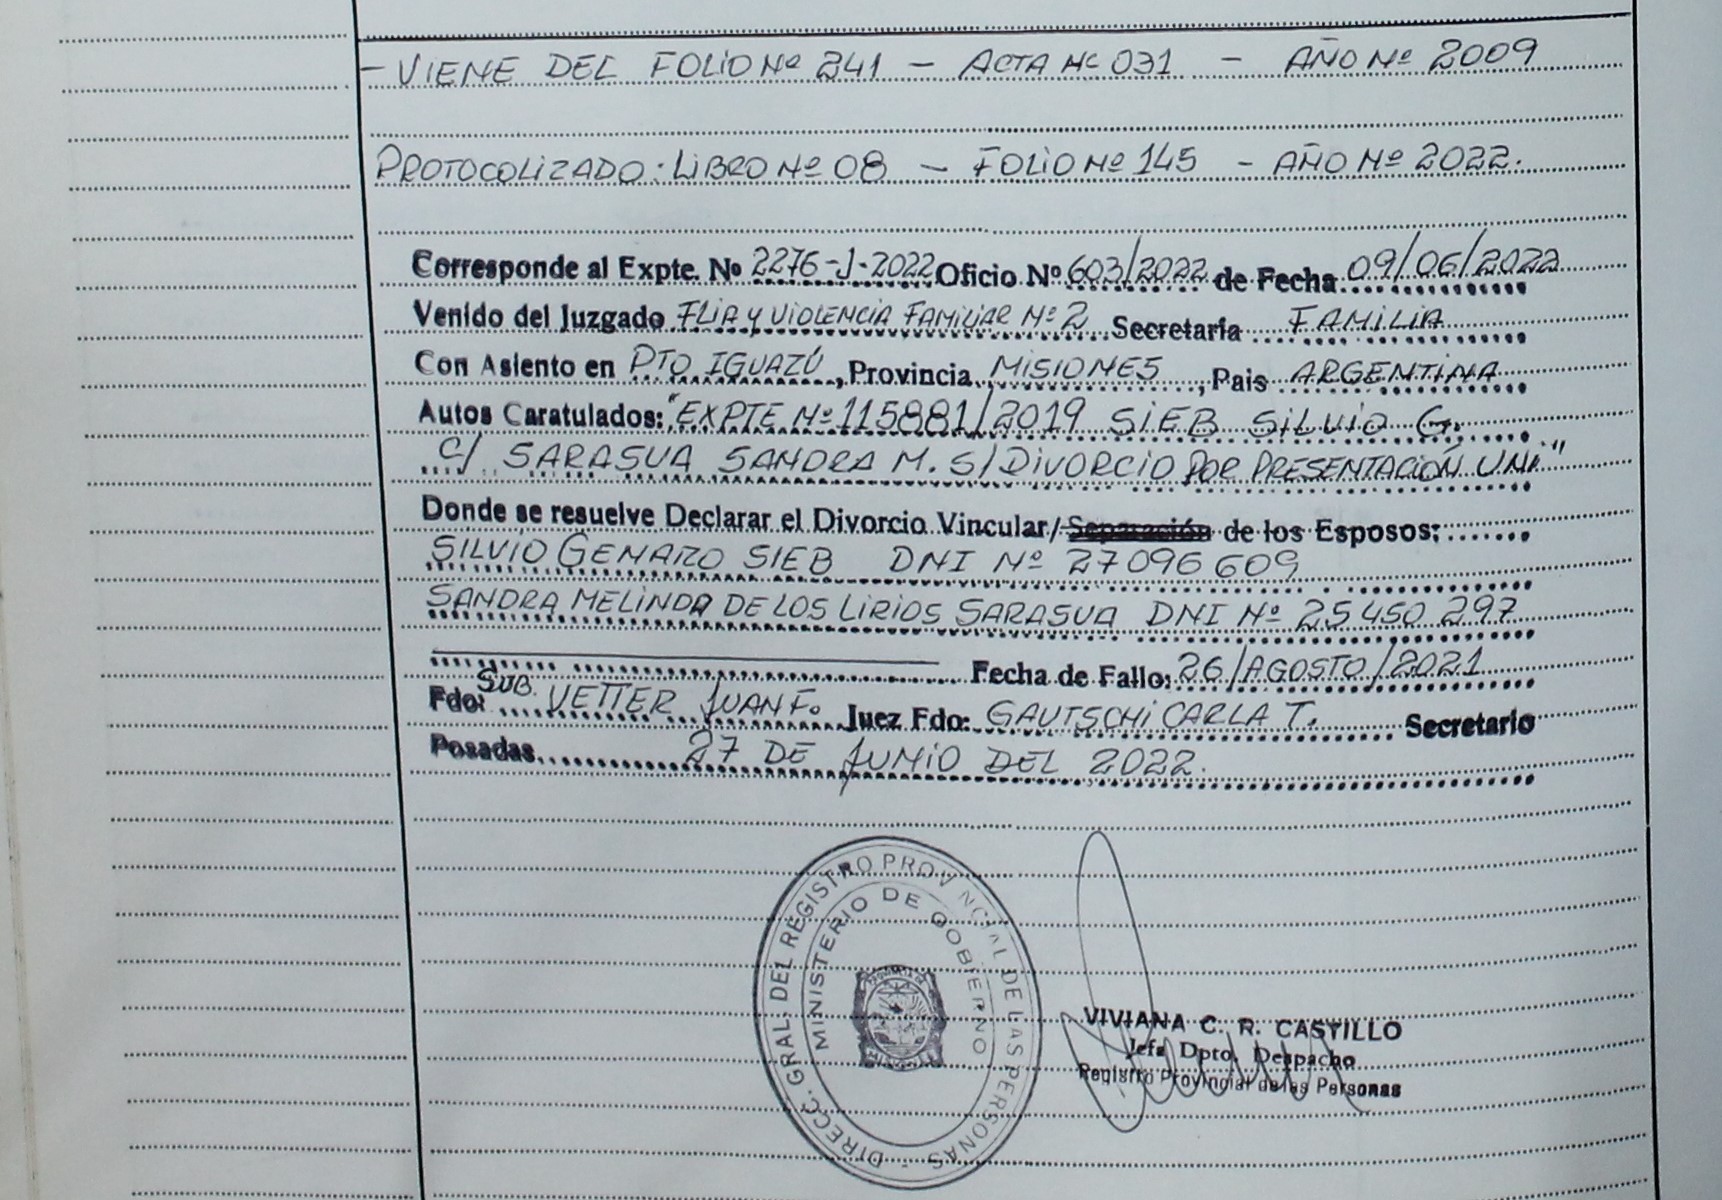 - VIENE DEL FOLIO Nº 241 - ACTA Nº 031 - AÑO Nº 2009
PROTOCOLIZADO: LIBRO Nº 08 - FOLIO Nº 145 - AÑO Nº 2022.
Corresponde al Expte. Nº 2276-J-2022 Oficio Nº 603/2022 de Fecha 09/06/2022
Venido del Juzgado FLIA Y VIOLENCIA FAMILIAR Nº 2 Secretaría FAMILIA
Con Asiento en PTO IGUAZÚ, Provincia MISIONES, Pais ARGENTINA
Autos Caratulados: "EXPTE Nº 115881/2019 SIEB SILVIO G.
C/ SARASUA SANDRA M. S/ DIVORCIO POR PRESENTACIÓN UNI."
Donde se resuelve Declarar el Divorcio Vincular/Separación de los Esposos:
SILVIO GENARO SIEB DNI Nº 27096609
SANDRA MELINDA DE LOS LIRIOS SARASUA DNI Nº 25450297
Fecha de Fallo: 26/AGOSTO/2021
Fdo: SUB. VETTER JUAN F. Juez Fdo: GAUTSCHI CARLA T. Secretario
Posadas 27 DE JUNIO DEL 2022.
DIRECC. GRAL. DEL REGISTRO PROVINCIAL DE LAS PERSONAS
MINISTERIO DE GOBIERNO
MISIONES
VIVIANA C. R. CASTILLO
Jefa Dpto. Despacho
Registro Provincial de las Personas